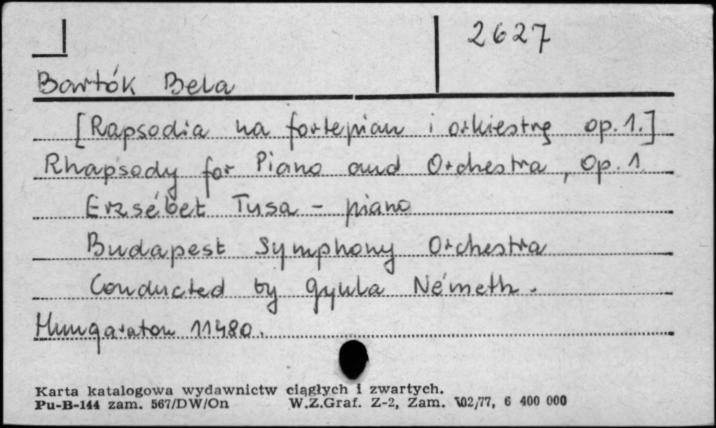 2627
Bartók Bela
[Rapsodia na fortepian i orkiestrę op. 1.]
Rhapsody for Piano and Orchestra, Op. 1.
Erzsébet Tusa - piano
Budapest Symphony Orchestra
Conducted by Gyula Németh.
Hungaraton 11480.
Karta katalogowa wydawnictw ciągłych i zwartych.
Pu-B-144 zam. 567/DW/On W.Z.Graf. Z-2, Zam. 102/77, 6 400 000